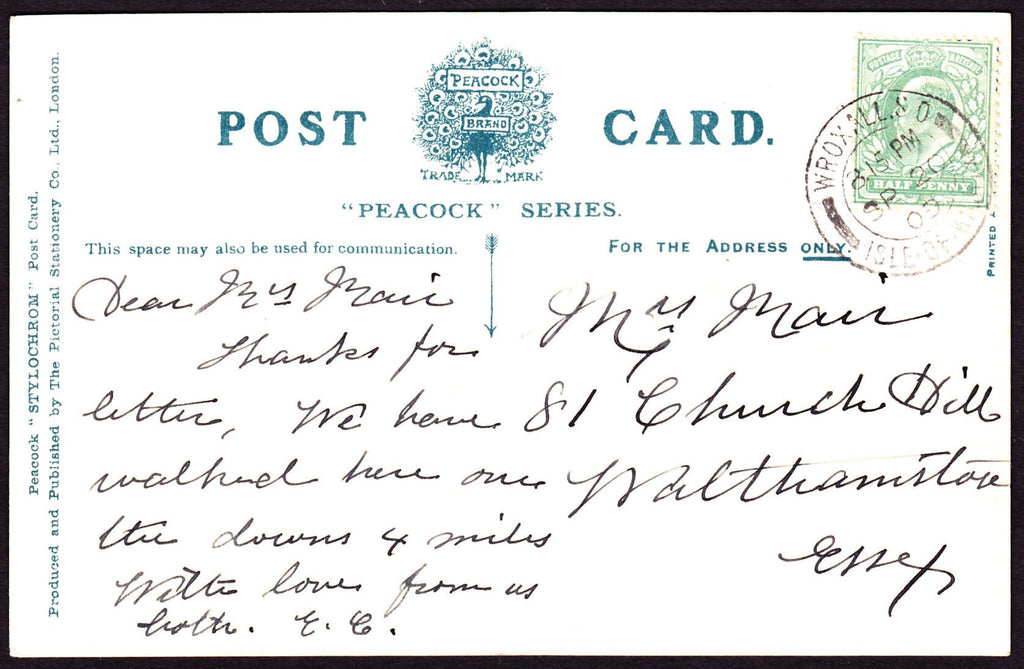 POST CARD.
PEACOCK
BRAND
TRADE MARK
"PEACOCK" SERIES.
This space may also be used for communication.
FOR THE ADDRESS ONLY.
POSTAGE REVENUE
HALF PENNY
WROXALL.S.O
8 15 PM
SP 20
ISLE OF
PRINTED
Peacock "STYLOCHROM" Post Card.
Produced and Published by The Pictorial Stationery Co., Ltd., London.
Dear Mrs Mair
Thanks for
letter, We have
walked here over
the downs 4 miles
With love from us
both. E. C.
Mrs Mair
81 Church Hill
Walthamstow
Essex